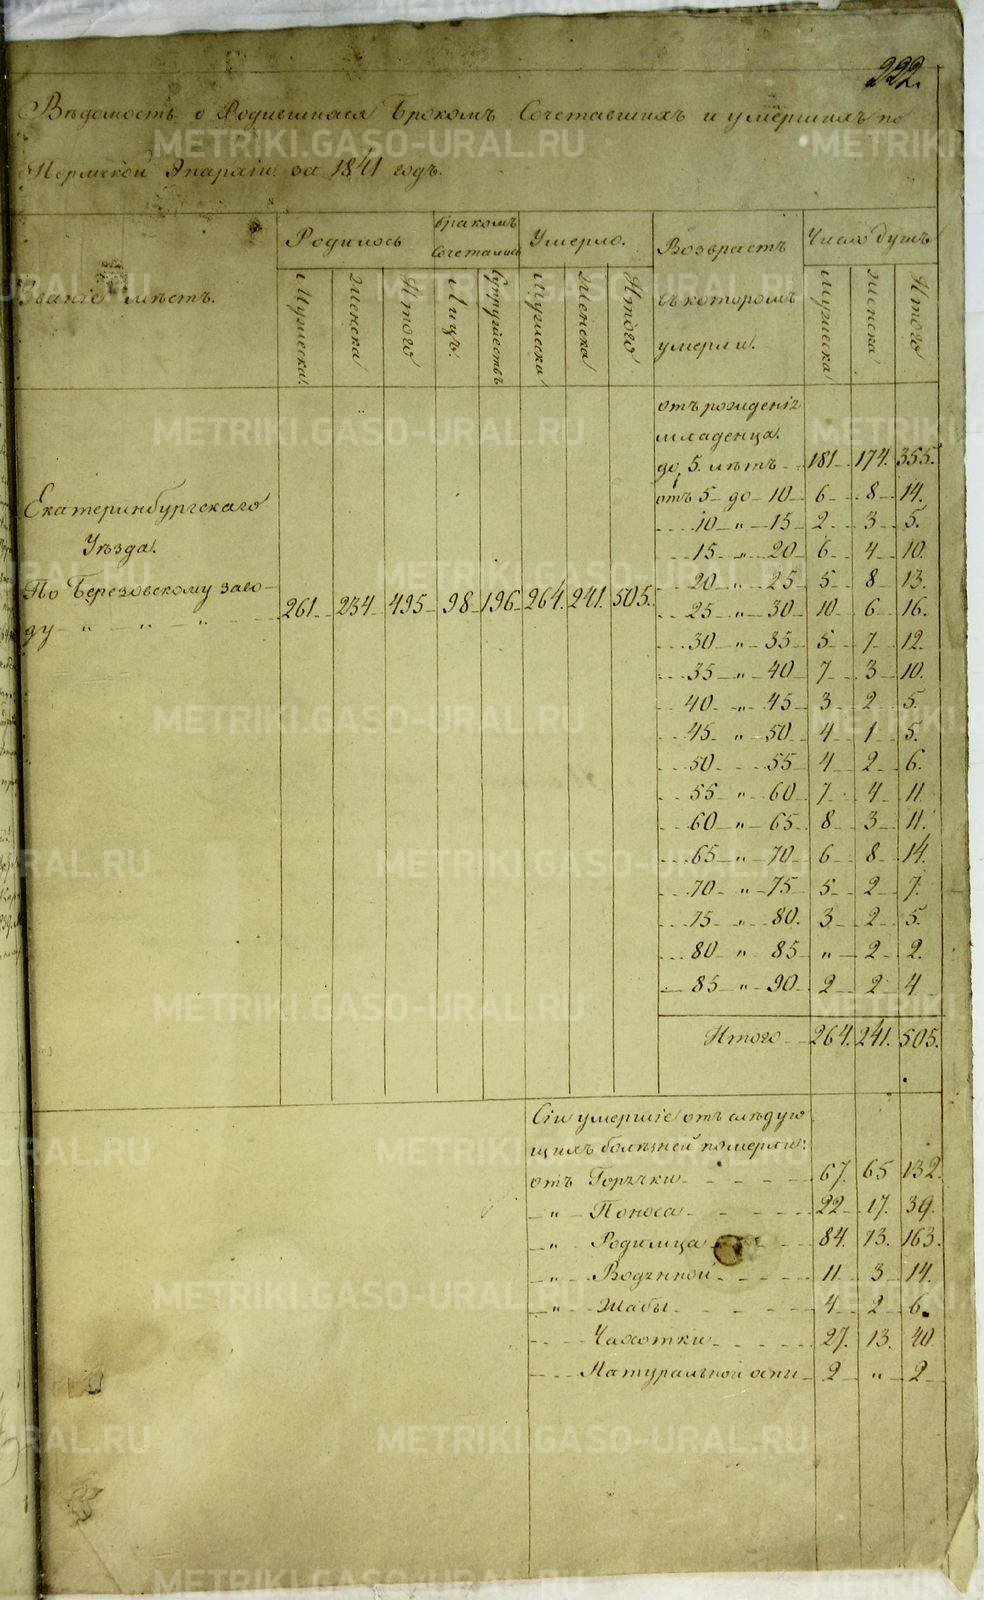 222.
Вѣдомость о Родившихся Бракомъ Сочетавшихъ и умершихъ по
Пермской Эпархіи за 1841 годъ.
Званіе мѣстъ.
Родилось
Мужеска.
Женска
Итого
Бракомъ
Сочетались
Лицъ.
Супружествъ
Умерло.
Мужеска
Женска
Итого
Возврастъ
въ которомъ
умерли.
Число душъ
Мужеска
Женска
Итого
Екатеринбургскаго
Уѣзда.
По Березовскому заво-
ду " " " 261. 234 495 98 196 264. 241. 505.
отъ рожденія
младенца.
до 5. лѣтъ 181 174. 355.
отъ 5 до 10 6 8 14.
10 " 15 2 3 5.
15 " 20 6 4 10.
20 " 25 5 8 13.
25 " 30 10 6 16.
30 " 35 5 7 12.
35 " 40 7 3 10.
40 " 45 3 2 5.
45 " 50 4 1 5.
50 55 4 2 6.
55 " 60 7 4 11
60 " 65 8 3 11.
65 " 70 6 8 14.
70 " 75 5 2 7.
75 " 80. 3 2 5.
80 " 85 " 2 2.
85 " 90 2 2 4
Итого 264. 241. 505.
Сіи умершіе отъ слѣдую
щихъ болѣзней померли:
отъ Горячки 67. 65 132.
" Поноса 22 17. 39.
" Родимца 84. 73. 163.
" Водяной 11 3 14.
" Жабы 4 2 6.
Чахотки 27. 13. 40
Натуральной оспы 2 " 2
METRIKI.GASO-URAL.RU